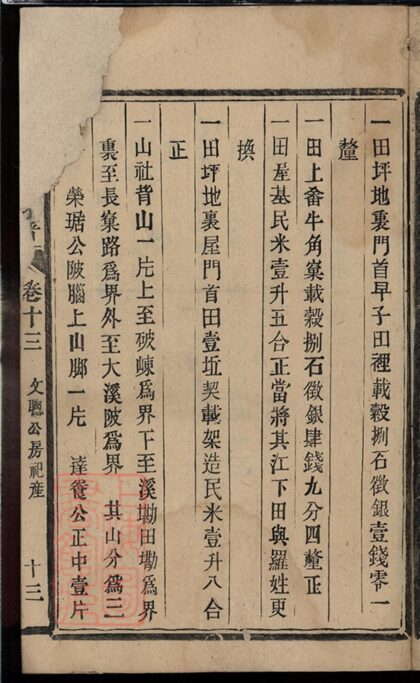 一田坪地裏門首早子田裡載穀捌石徵銀壹錢零一
釐
一田上畬牛角窠載穀捌石徵銀肆錢九分四釐正
一田屋基民米壹升五合正當將其江下田與羅姓更
換
一田坪地裏屋門首田壹坵契載架造民米壹升八合
正
一山社背山一片上至破崠為界下至溪勘田勘為界
裏至長窠路為界外至大溪陂為界 其山分為三
榮琚公陂腦上山腳一片 達養公正中壹片
卷十三
文聰公房祀産
十三